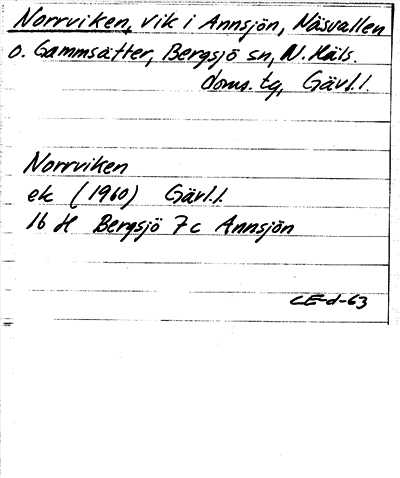 Norrviken, vik i Annsjön, Näsvallen
o. Gammsätter, Bergsjö sn, N. Häls.
doms. tg, Gävl.l.
Norrviken
ek (1960) Gävl.l.
16 H Bergsjö 7c Annsjön
CE-d-63